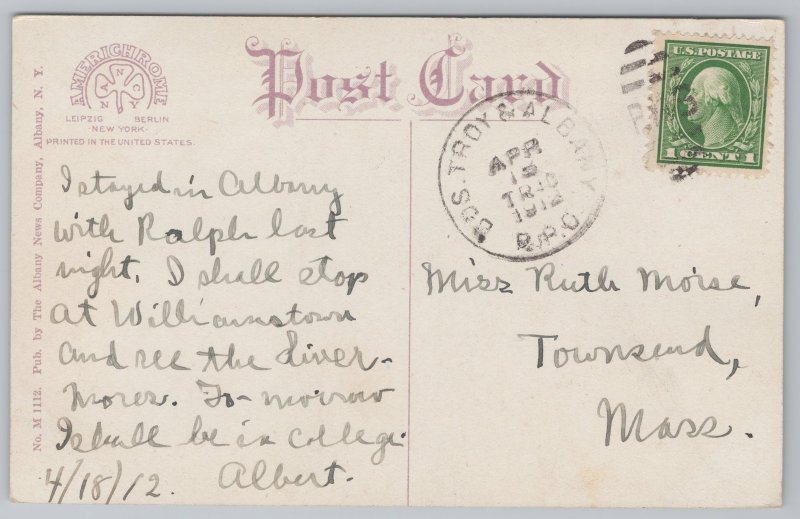 AMERICHROME
ANNCY
LEIPZIG BERLIN
NEW YORK
PRINTED IN THE UNITED STATES.
Post Card
No. M 1112. Pub. by The Albany News Company, Albany, N. Y.
BOS. TROY & ALBANY
APR
TR
1912
R.P.O.
U.S. POSTAGE
1 CENT 1
I stayed in Albany
with Ralph last
night. I shall stop
at Williamstown
and see the Liver-
mores. To-morrow
I shall be in college.
4/18/12. Albert.
Miss Ruth Morse,
Townsend,
Mass.